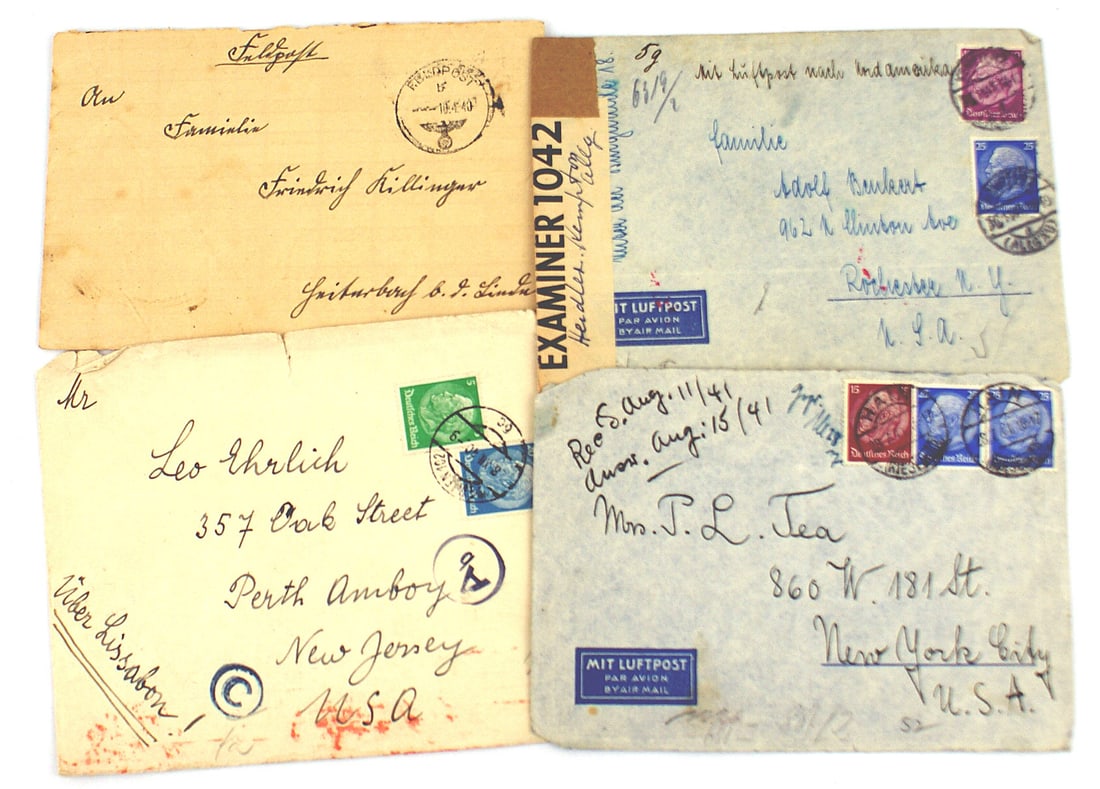 Feldpost
An
Famielie
Friedrich Killinger
Heiterbach b. d. Linde
FELDPOST
40
5g
Mit Luftpost nach Nordamerika
6319/2
Familie
Adolf Benkert
962 N Clinton Ave
Rochester N. Y.
U. S. A.
18
EXAMINER 1042
25
MIT LUFTPOST
PAR AVION
BY AIR MAIL
Mr
Leo Ehrlich
357 Oak Street
Perth Amboy
New Jersey
USA
Über Lissabon!
5
Deutsches Reich
39
A
C
Rec'd. Aug. 11/41
answ. Aug: 15/41
15
25
25
Deutsches Reich
Mrs. P. L. Tea
860 W. 181 St.
New York City
U. S. A.
MIT LUFTPOST
PAR AVION
BY AIR MAIL
52